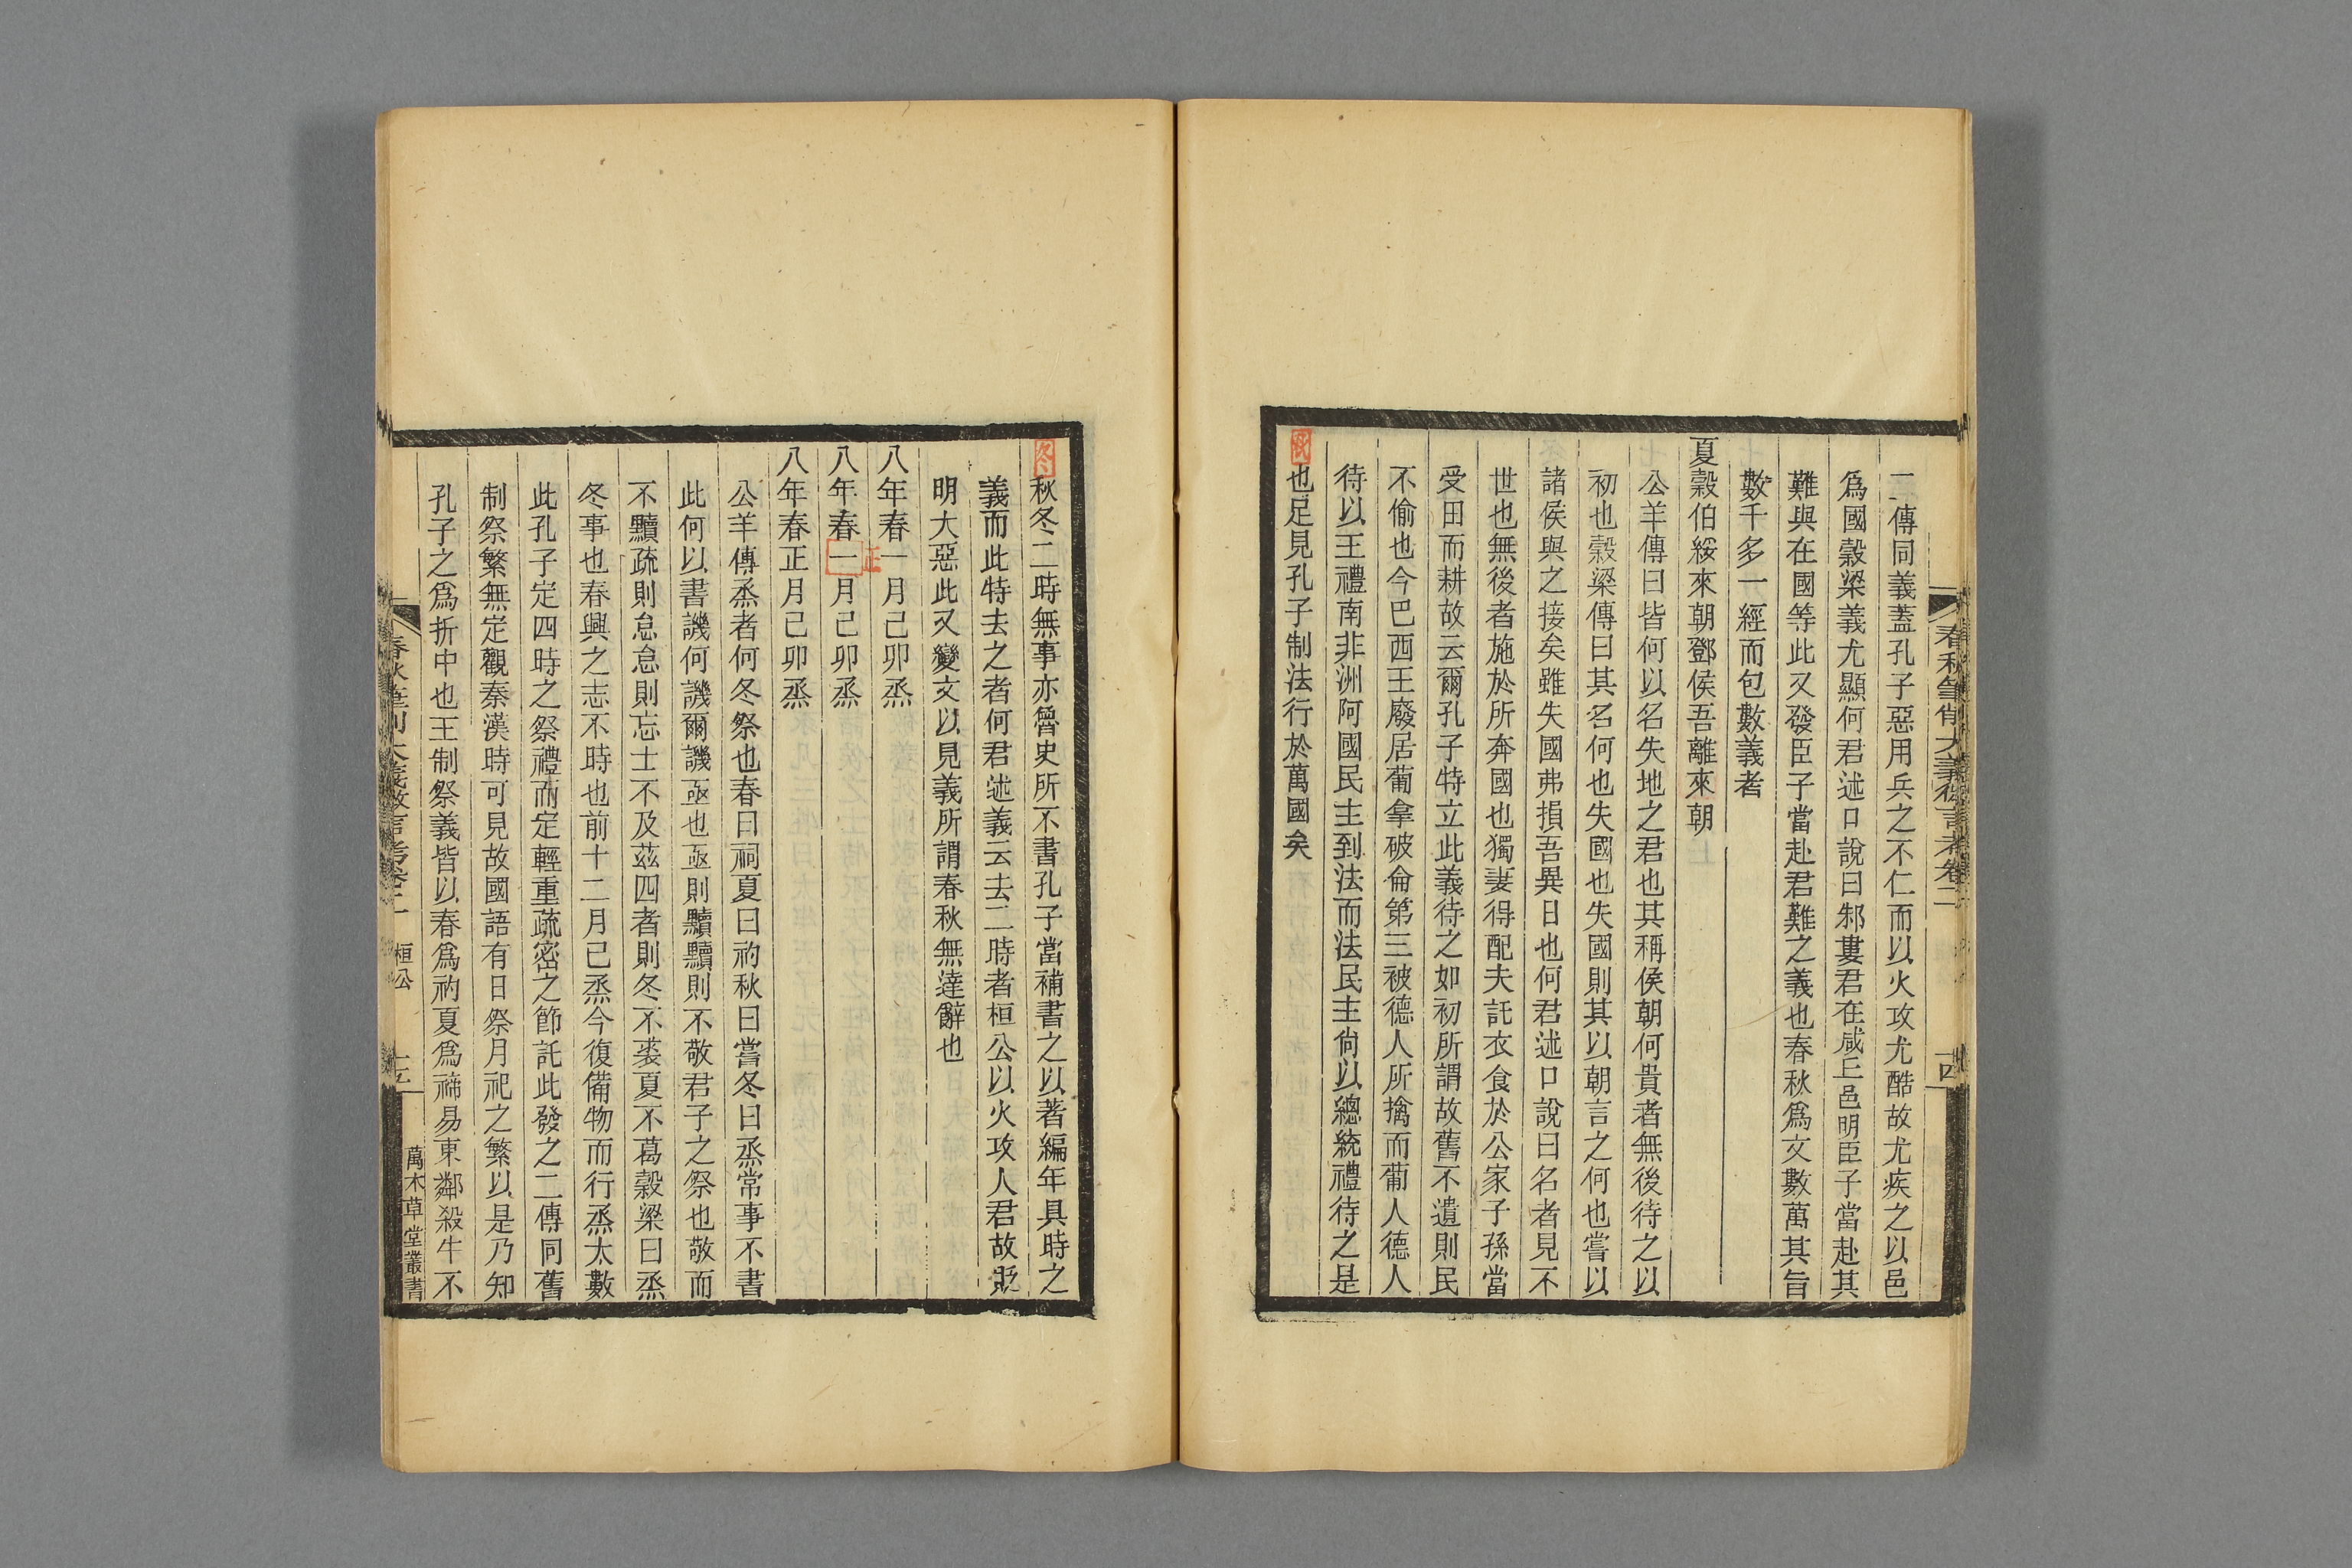 春秋筆削大義微言考卷二
十四
二傳同義蓋孔子惡用兵之不仁而以火攻尤酷故尤疾之以邑
爲國穀梁義尤顯何君述口說曰邾婁君在咸丘邑明臣子當赴其
難與在國等此又發臣子當赴君難之義也春秋爲文數萬其旨
數千多一經而包數義者
夏穀伯綏來朝鄧侯吾離來朝
公羊傳曰皆何以名失地之君也其稱侯朝何貴者無後待之以
初也穀梁傳曰其名何也失國也失國則其以朝言之何也嘗以
諸侯與之接矣雖失國弗損吾異日也何君述口說曰名者見不
世也無後者施於所奔國也獨妻得配夫託衣食於公家子孫當
受田而耕故云爾孔子特立此義待之如初所謂故舊不遺則民
不偷也今巴西王廢居葡拿破侖第三被德人所擒而葡人德人
待以王禮南非洲阿國民主到法而法民主尙以總統禮待之是
民也足見孔子制法行於萬國矣
冬秋冬二時無事亦魯史所不書孔子當補書之以著編年具時之
義而此特去之者何君述義云去二時者桓公以火攻人君故貶
明大惡此又變文以見義所謂春秋無達辭也
八年春一月己卯烝
八年春一月己卯烝
正
八年春正月己卯烝
公羊傳烝者何冬祭也春曰祠夏曰礿秋曰嘗冬曰烝常事不書
此何以書譏何譏爾譏亟也亟則黷黷則不敬君子之祭也敬而
不黷疏則怠怠則忘士不及茲四者則冬不裘夏不葛穀梁曰烝
冬事也春興之志不時也前十二月己烝今復備物而行烝太數
此孔子定四時之祭禮而定輕重疏密之節託此發之二傳同舊
制祭繁無定觀秦漢時可見故國語有日祭月祀之繁以是乃知
孔子之爲折中也王制祭義皆以春爲礿夏爲禘易東鄰殺牛不
春秋筆削大義微言考卷二
桓公
十五
萬木草堂叢書